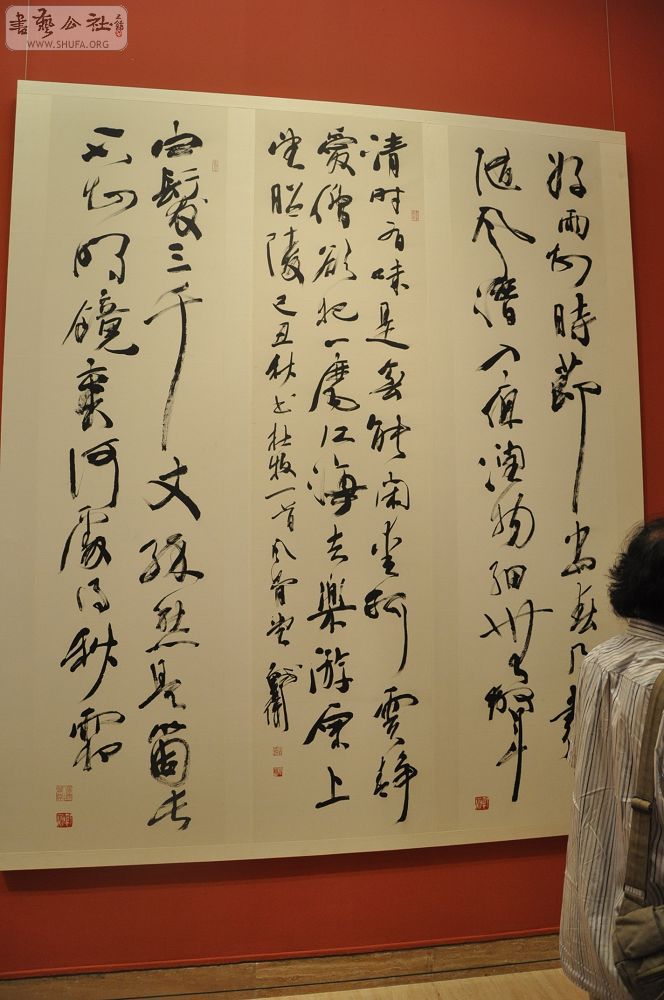 書藝公社
WWW.SHUFA.ORG
好雨知時節當春乃發
随风潜入夜潤物細無聲
清时有味是無能闲愛孤雲静
愛僧欲把一麾江海去樂游原上
望昭陵己丑秋书杜牧一首风骨堂
白髮三千丈緣愁似箇長
不知明鏡裏何處得秋霜